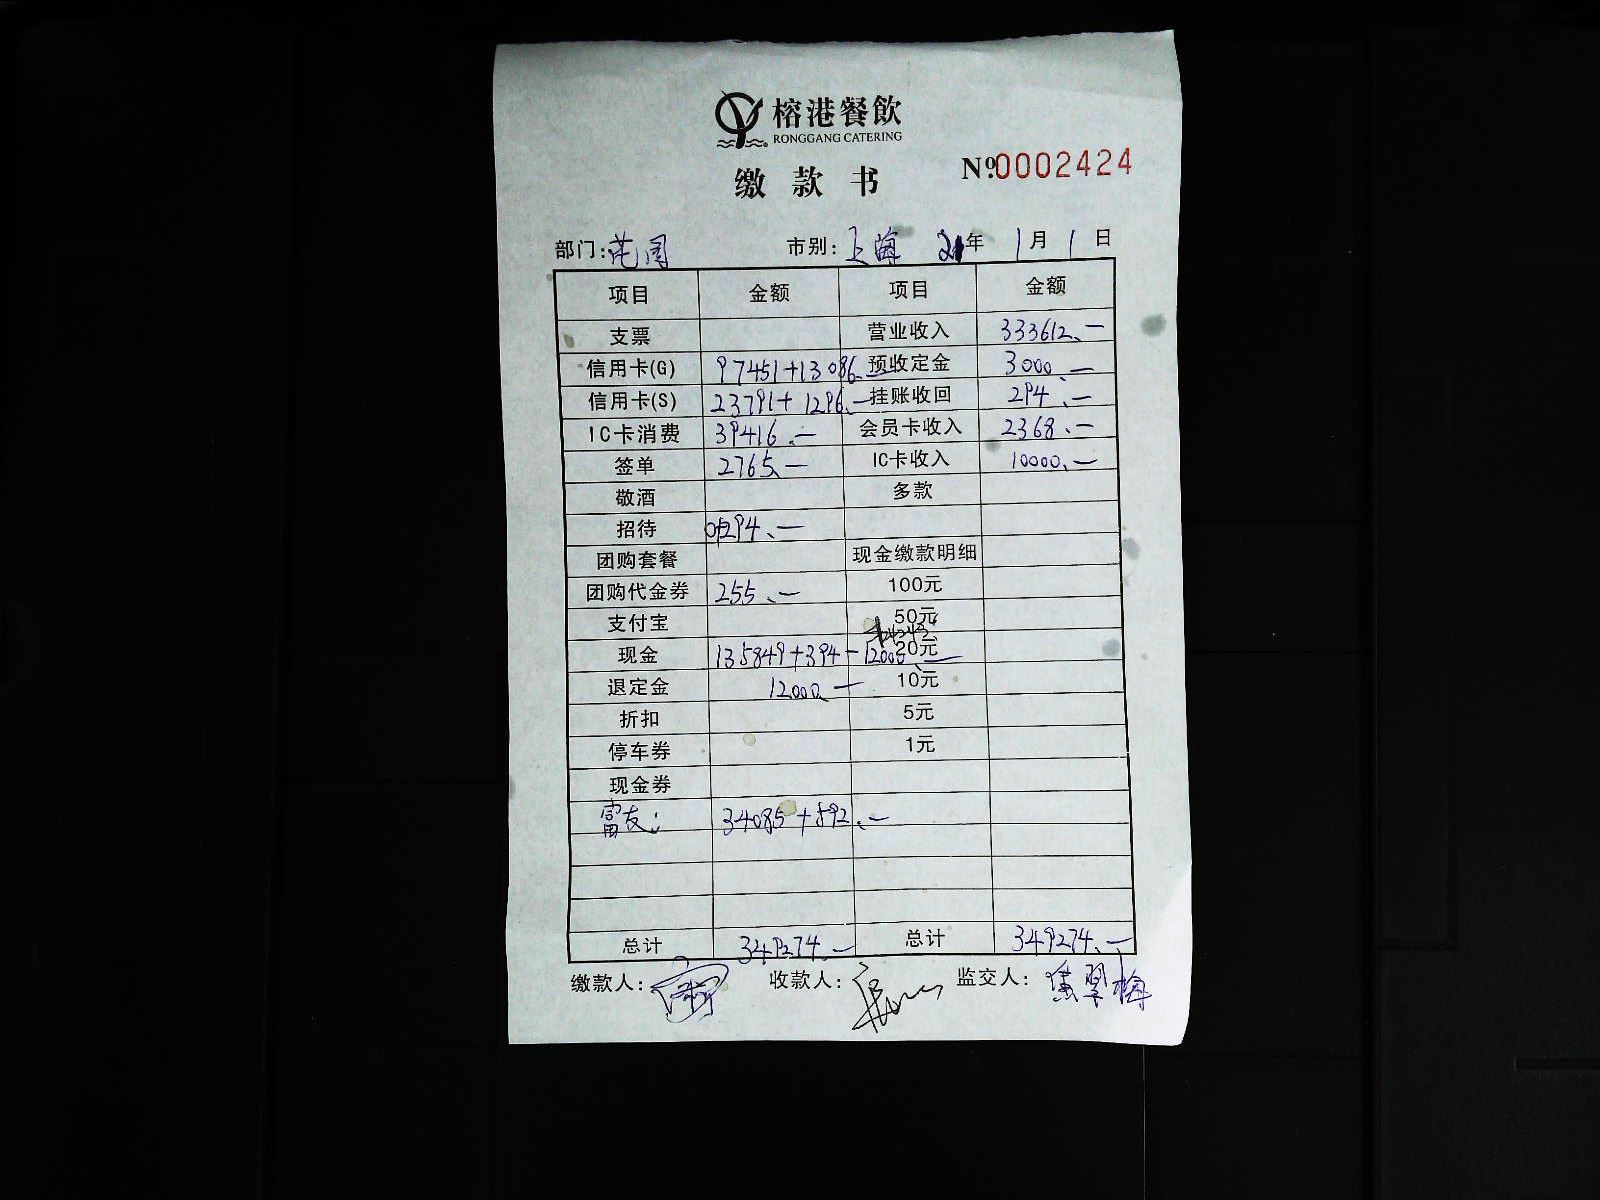 榕港餐飲
RONGGANG CATERING
缴款书
№0002424
部门:花园 市别:上海 21年 1月 1日
项目 金额 项目 金额
支票 营业收入 333612.—
信用卡(G) 97451+13086.— 预收定金 3000.—
信用卡(S) 23791+1296.— 挂账收回 294.—
IC卡消费 39416.— 会员卡收入 2368.—
签单 2765.— IC卡收入 10000.—
敬酒 多款
招待 294.—
团购套餐 现金缴款明细
团购代金券 255.— 100元
支付宝 50元
现金 135849+394-12000.— 20元
退定金 12000.— 10元
折扣 5元
停车券 1元
现金券
富友: 34085+592.—
总计 349274.— 总计 349274.—
缴款人: 收款人: 监交人: